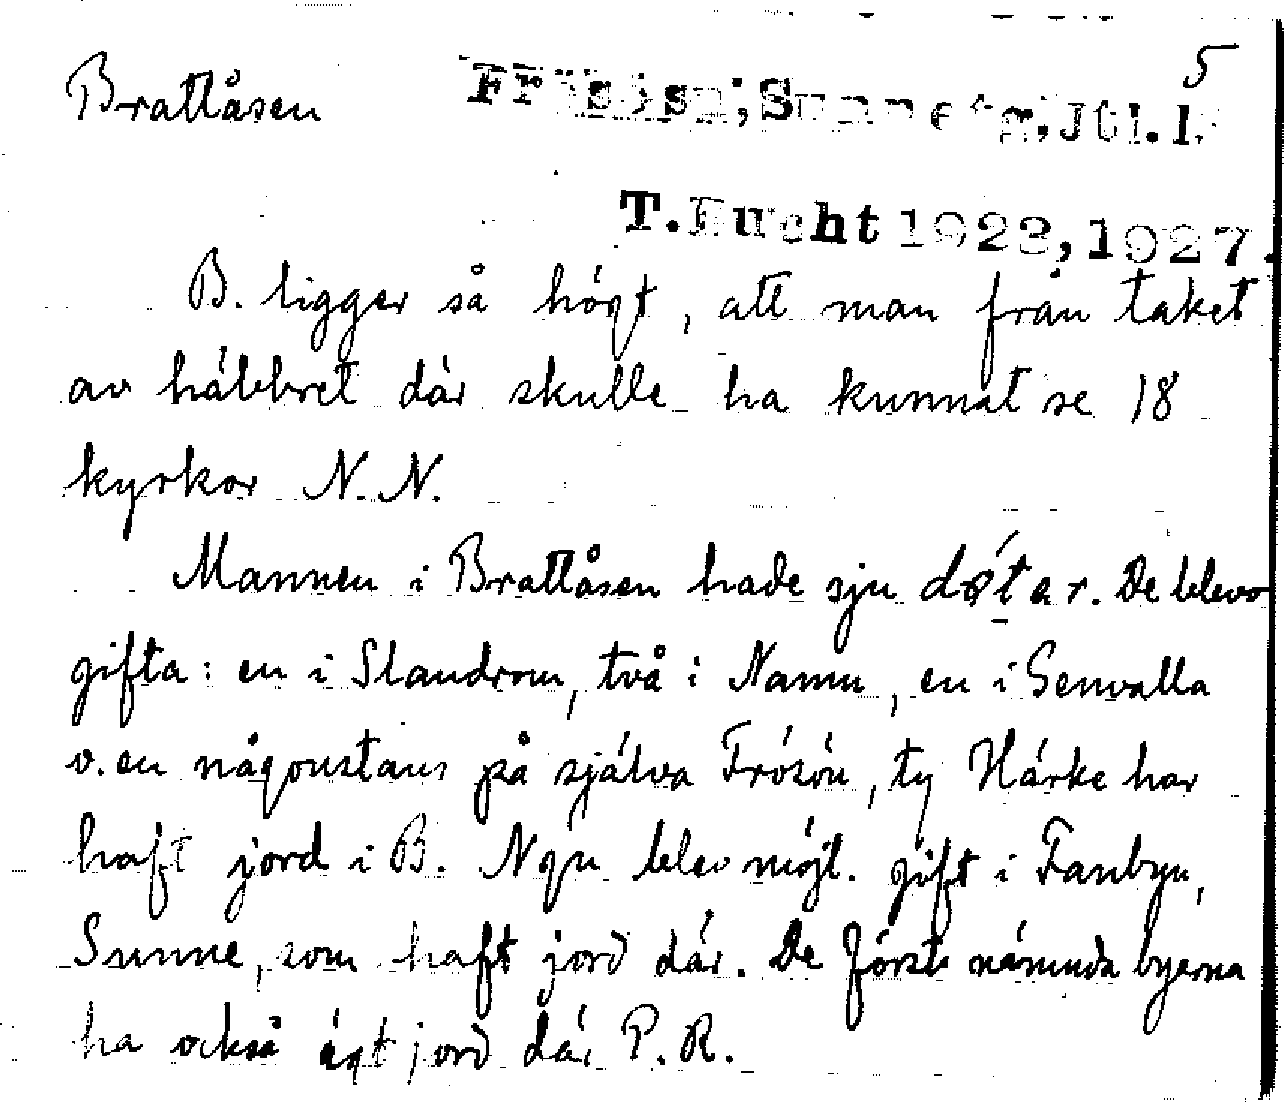 5
Brattåsen Frösösn, Sunne tg, Jtl. l.
T. Bucht 1922, 1927.
B. ligger så högt, att man från taket
av häbbret där skulle ha kunnat se 18
kyrkor N.N.
Mannen i Brattåsen hade sju dötar. De blevo
gifta: en i Slandrom, två i Namn, en i Genvalla
o. en någonstans på själva Frösön, ty Härke har
haft jord i B. Ngn blev möjl. gift i Fanbyn,
Sunne, som haft jord där. De först nämnda byerna
ha också ägt jord där P.R.